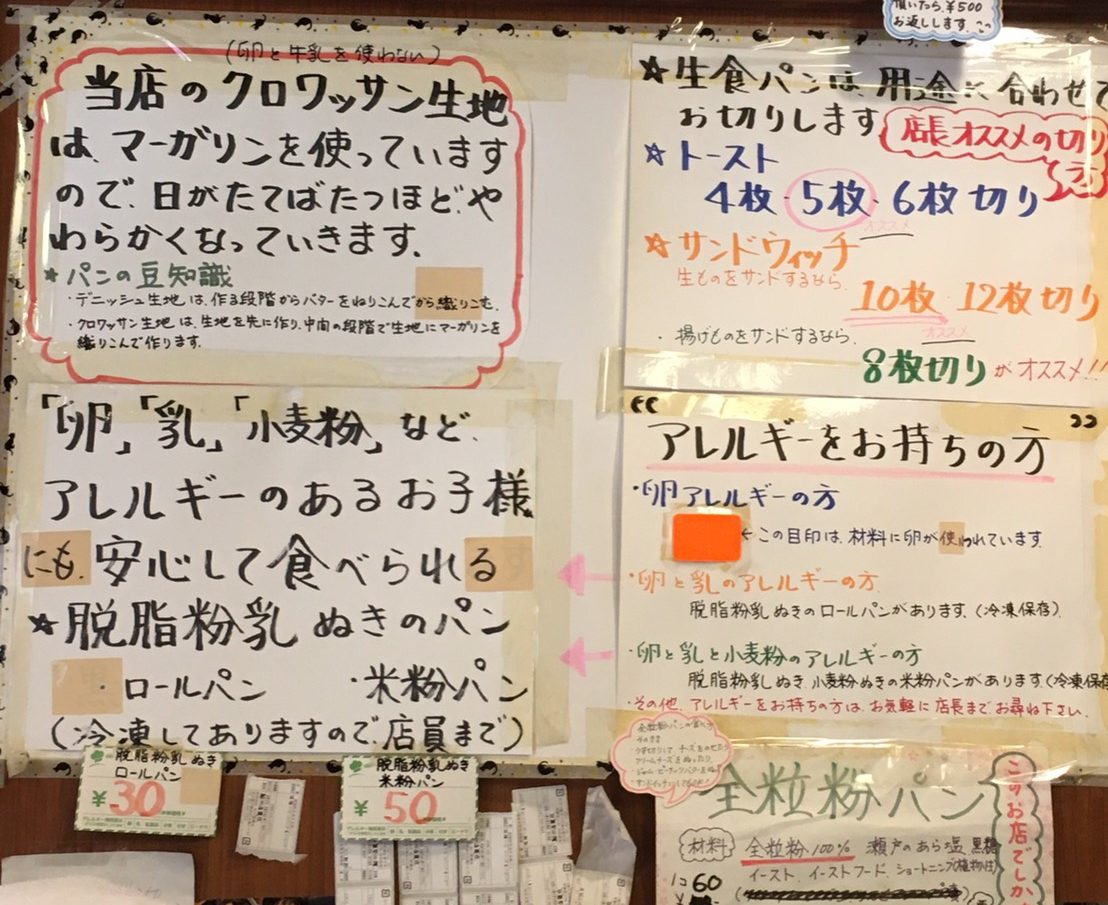 頂いたら、¥500
お返しします。この
(卵と牛乳を使わない)
当店のクロワッサン生地
は、マーガリンを使っています
ので、日がたてばたつほど、や
わらかくなっていきます。
★パンの豆知識
・デニッシュ生地は、作る段階からバターをぬりこんでから織りこむ。
・クロワッサン生地は、生地を先に作り、中間の段階で生地にマーガリンを
織りこんで作ります。
☆生食パンは、用途に合わせて
お切りします
店長オススメの切り
方
☆トースト
4枚・5枚・6枚切り
オススメ
☆サンドウィッチ
生ものをサンドするなら、
10枚・12枚切り
オススメ
・揚げものをサンドするなら、
8枚切りがオススメ!!
「卵」「乳」「小麦粉」など、
アレルギーのあるお子様
にも、安心して食べられる
★脱脂粉乳ぬきのパン
・ロールパン ・米粉パン
(冷凍してありますので、店員まで)
"アレルギーをお持ちの方"
・卵アレルギーの方
←この目印は、材料に卵が使われています。
・卵と乳のアレルギーの方
脱脂粉乳ぬきのロールパンがあります。(冷凍保存)
・卵と乳と小麦粉のアレルギーの方
脱脂粉乳ぬき、小麦粉ぬきの米粉パンがあります。(冷凍保存
・その他、アレルギーをお持ちの方は、お気軽に店長までお尋ね下さい。
脱脂粉乳ぬき
ロールパン
¥30
脱脂粉乳ぬき
米粉パン
¥50
全粒粉パン
このお店でしか
材料 全粒粉100% 瀬戸のあら塩、黒糖
イースト、イーストフード、ショートニング(植物性)
1コ60